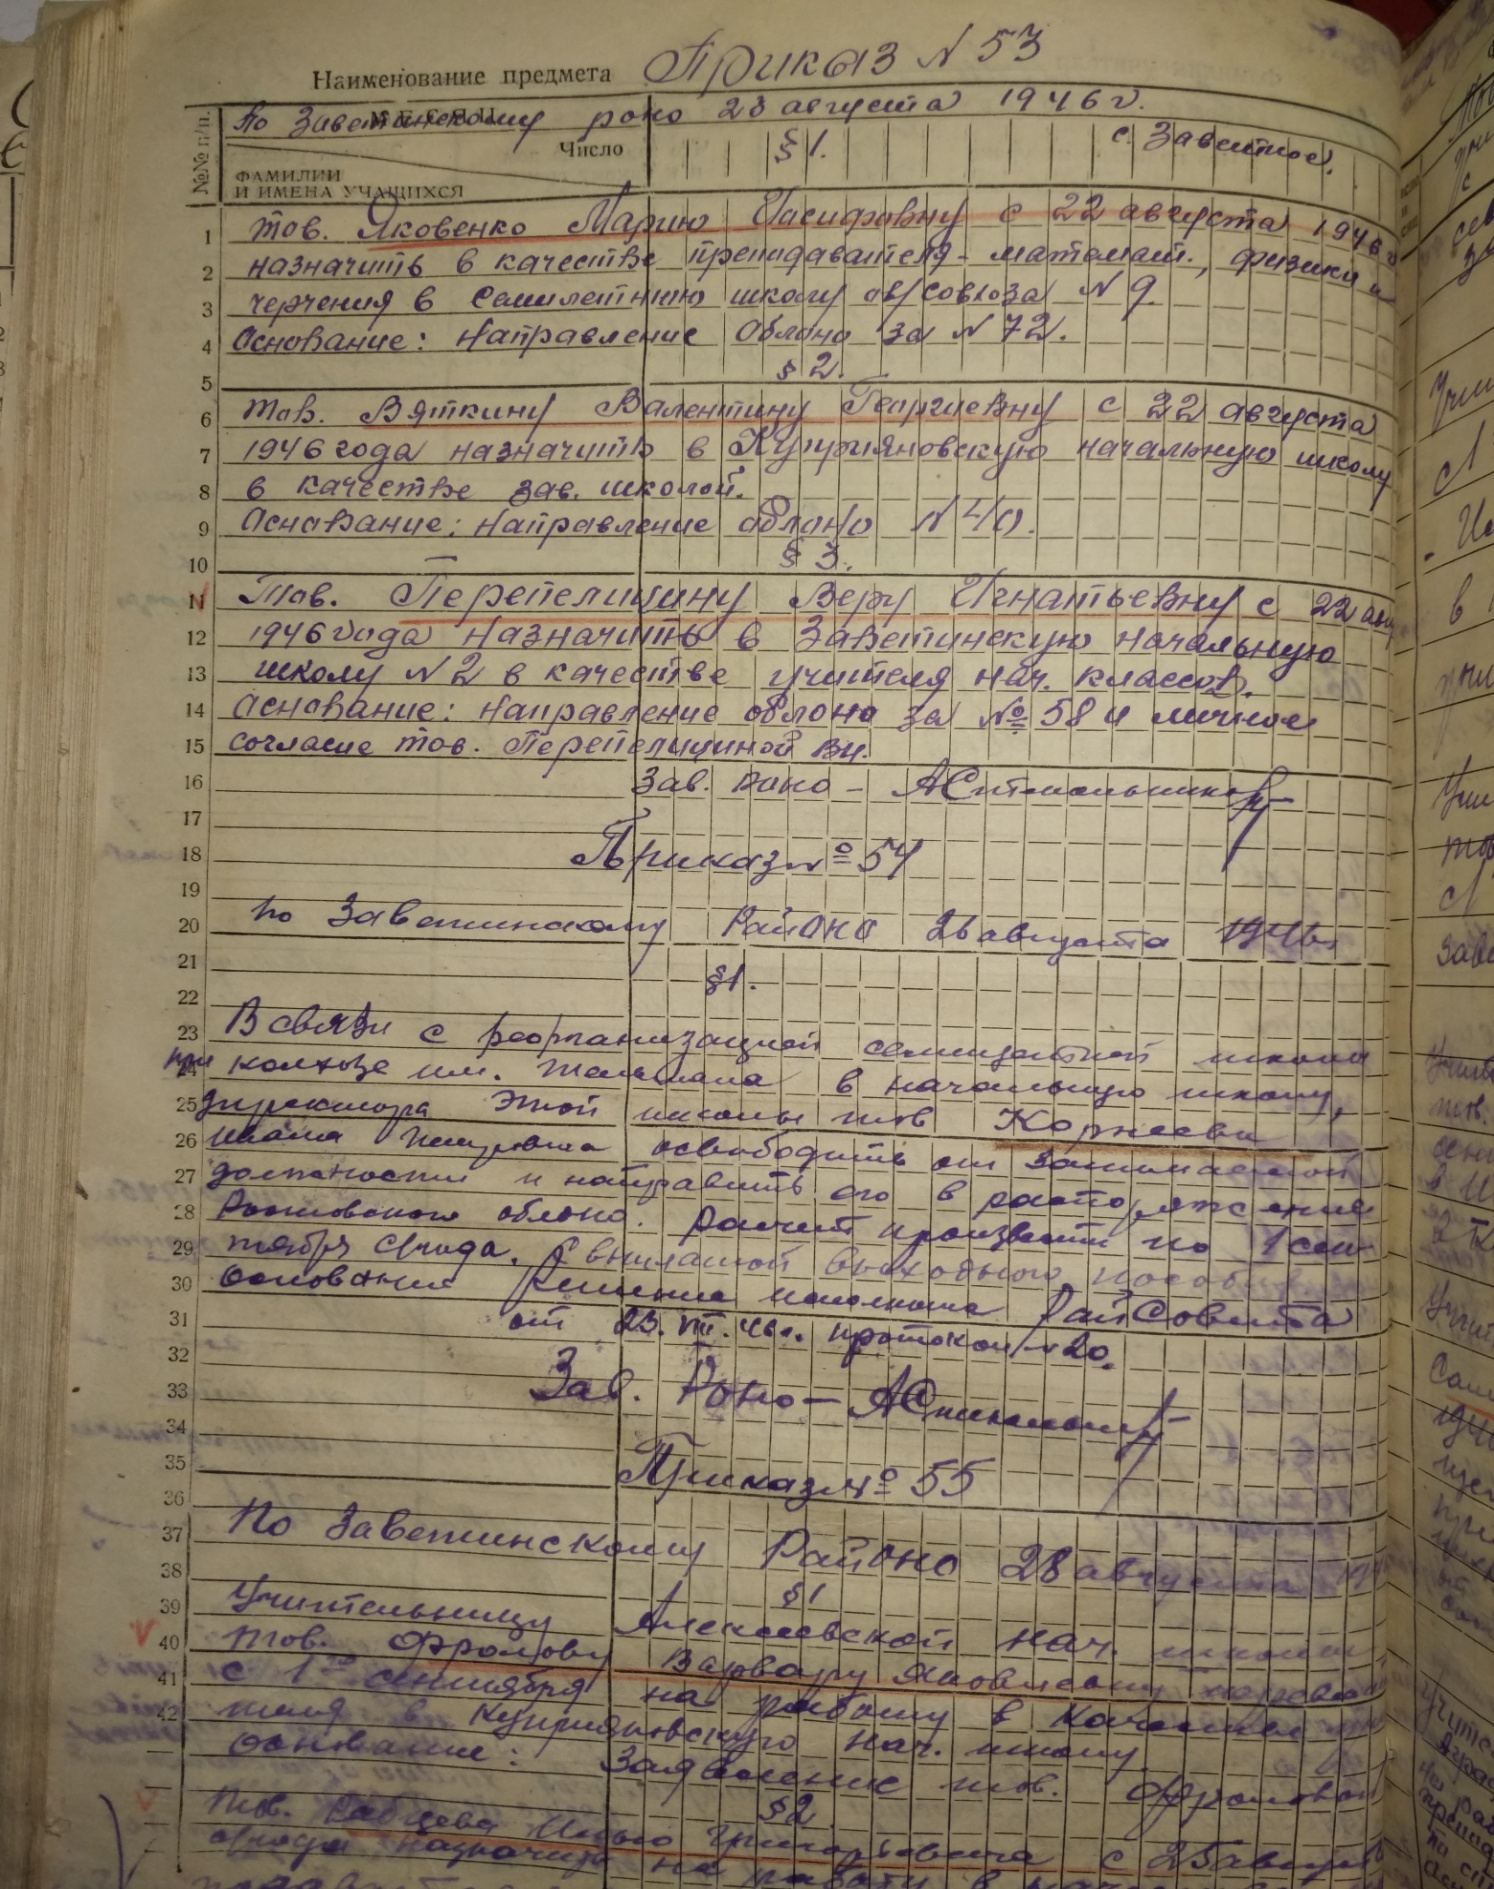 Приказ N 53
Наименование предмета
По Заветинскому роно 23 августа 1946 г.
№№ п/п.
Число
§ 1.
с. Заветное.
ФАМИЛИИ
И ИМЕНА УЧАЩИХСЯ
1 тов. Яковенко Марию Иасифовну с 22 августа 1946 г
2 назначить в качестве преподавателя - математ., физики и
3 черчения в Семилетнюю школу ов/совхоза N 9.
4 Основание: Направление Облоно за N 72.
5 § 2.
6 тов. Вяткину Валентину Георгиевну с 22 августа
7 1946 года назначить в Куприяновскую начальную школу
8 в качестве зав. школой.
9 Основание: Направление облоно N 40.
10 § 3.
11 Тов. Перепелицину Веру Игнатьевну с 22 авг
12 1946 года назначить в Заветинскую начальную
13 школу N 2 в качестве учителя нач. классов.
14 Основание: Направление облоно за № 58 и личное
15 согласие тов. Перепелициной В.И.
16 Зав. роно -
17
18 Приказ № 54
19
20 по Заветинскому РайОНО 26 августа 1946 г.
21 § 1.
22
23 В связи с реорганизацией семилетней школы
24 при колхозе им. Тельмана в начальную школу,
25 директора этой школы тов Корнеева
26 освободить от занимаемой
27 должности и направить его в распоряжение
28 Ростовского облоно. Расчет произвести по 1 сен-
29 тября с/года. С выплатой выходного пособия
30 основание Решение исполкома РайСовета
31 от 23. VIII. 46 г. протокол N 20.
32
33 Зав. Роно -
34
35 Приказ № 55
36
37 По Заветинскому РайОНО 28 августа 194
38 § 1
39 Учительницу Алексеевской нач. школы
40 тов. Фролову Варвару Яковлевну перевести
41 с 1го сентября на работу в качестве
42 в Куприяновскую нач. школу.
Основание: Заявление тов. Фроловой
§ 2
Тов. Григорьевича с 25 августа
с/года назначить на работу в